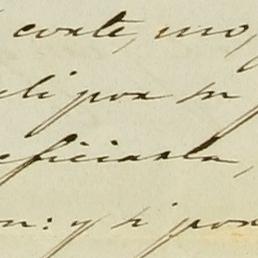 corte, mo
eli por su
eficiarla,
on: y si por